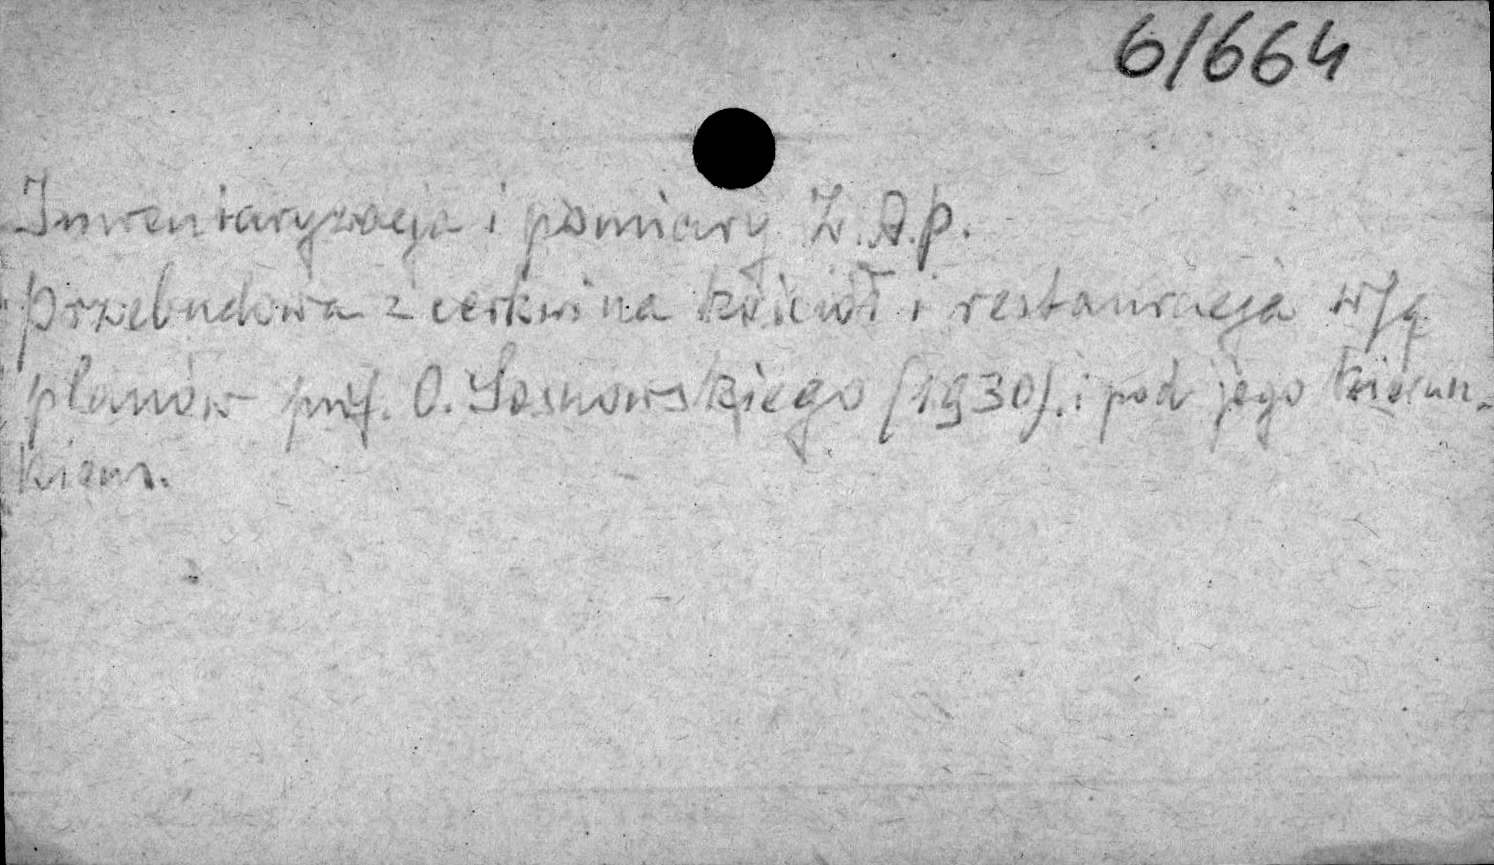 6/664
Inwentaryzacja i pomiary Z.A.P.
Przebudowa z cerkwi na kościół i restauracja wg
planów prof. O. Sosnowskiego (1930). i pod jego kierun-
kiem.